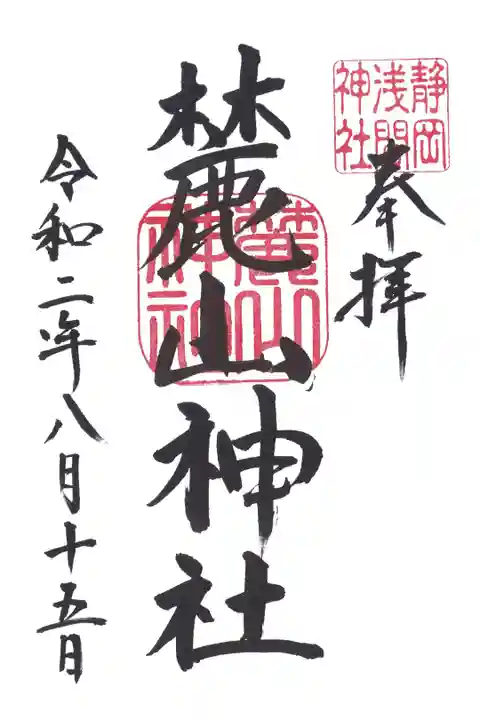 静岡
浅間
神社
奉拝
麓山神社
麓山
神社
令和二年八月十五日